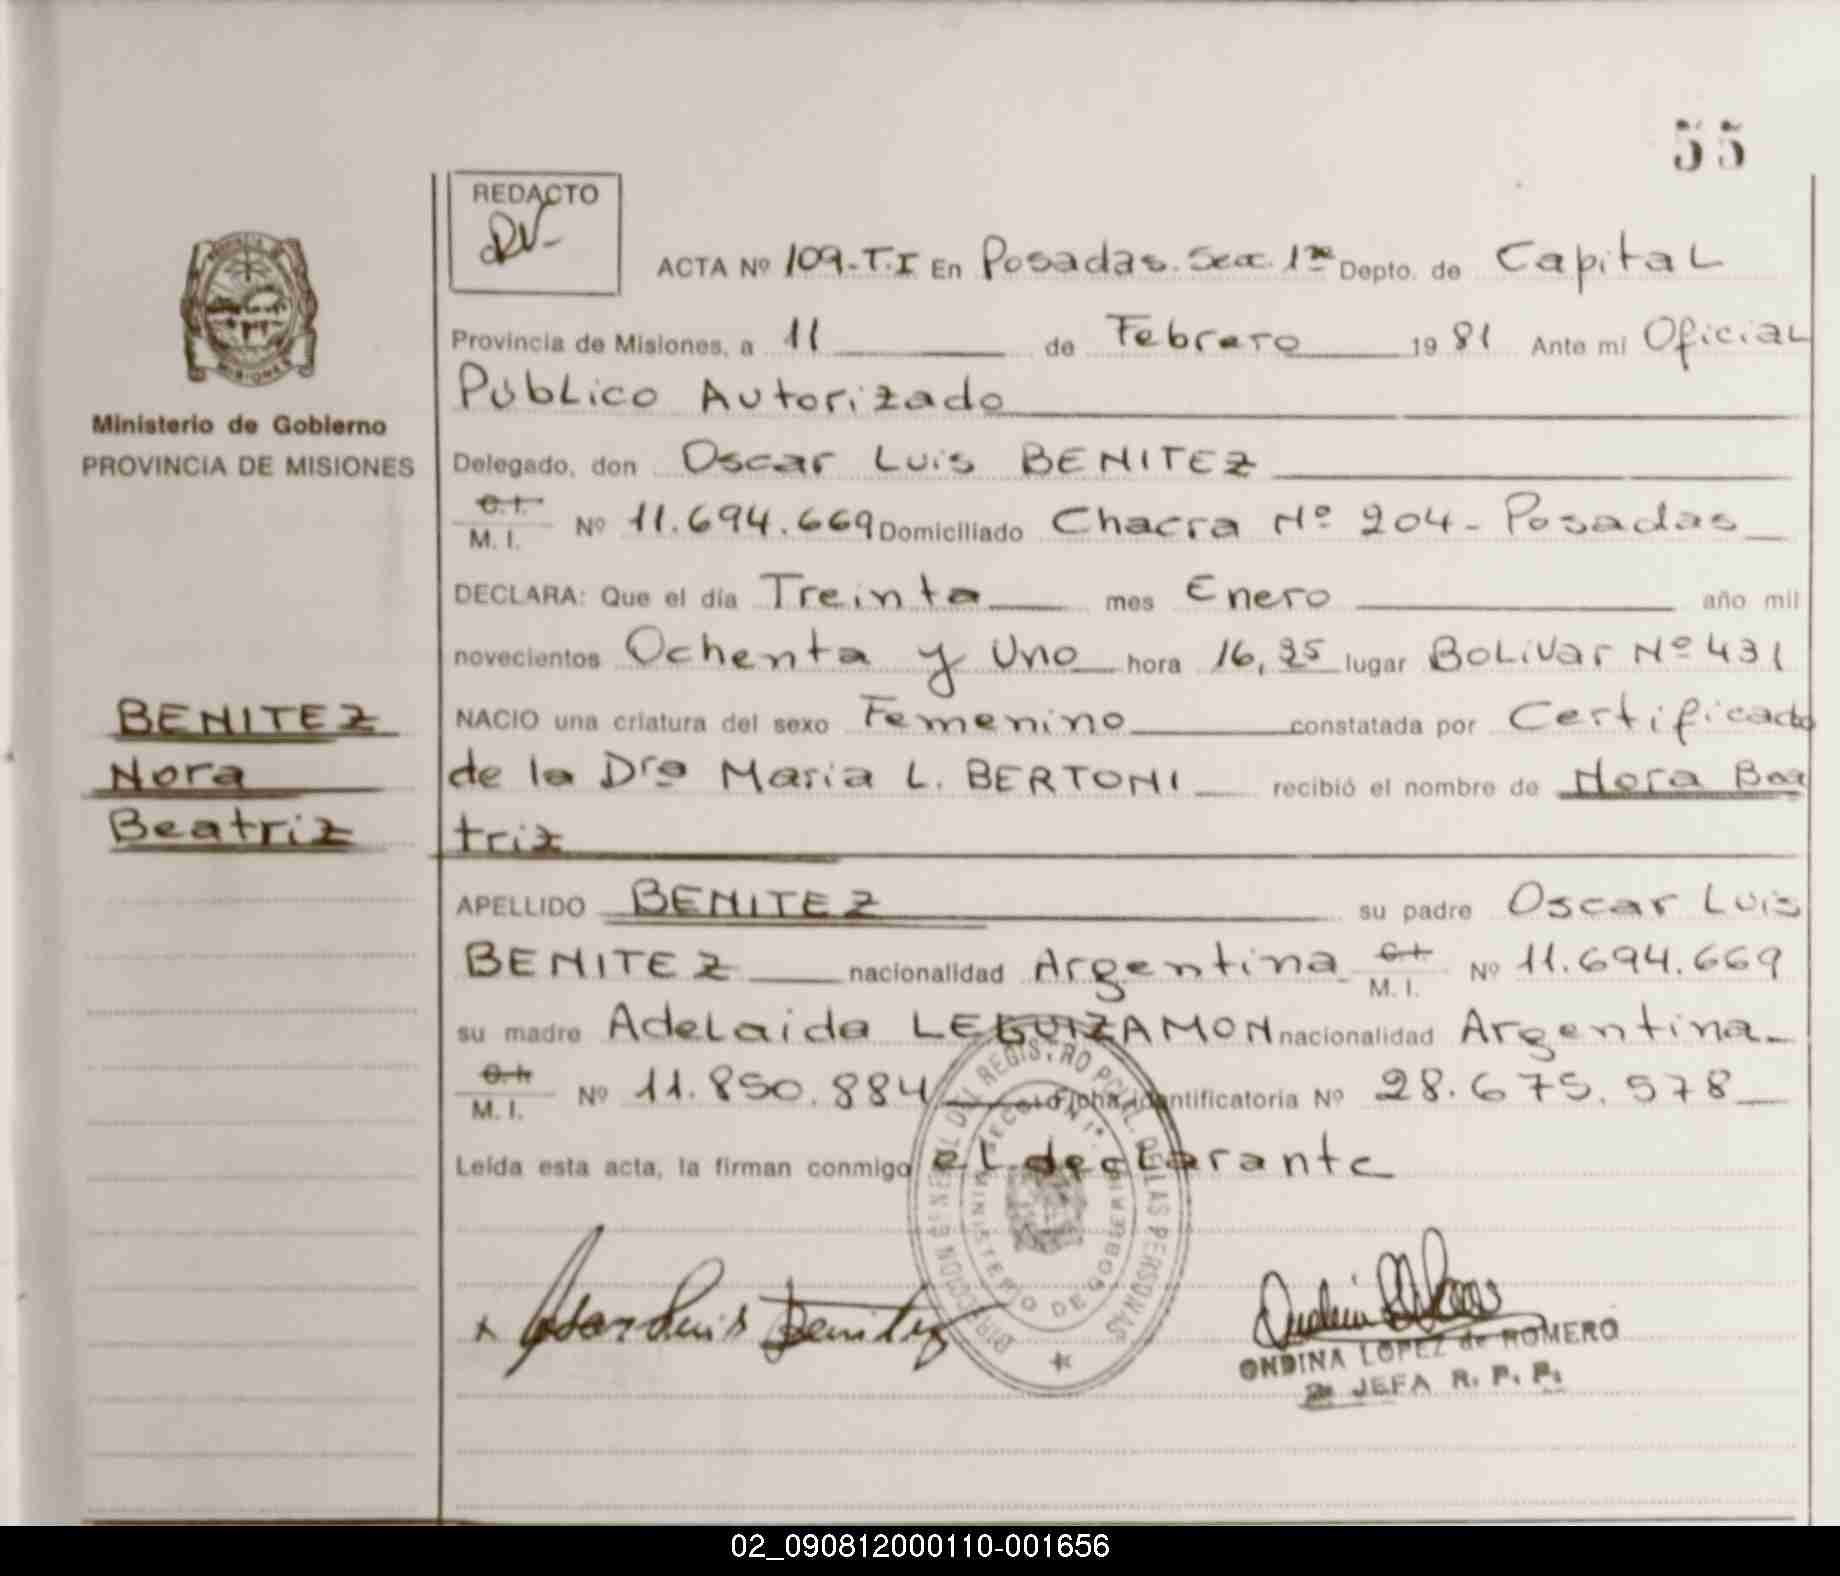 55
REDACTO
ACTA Nº 109-T.I En Posadas. Secc. 1ra Depto. de Capital
Provincia de Misiones, a 11 de Febrero 1981 Ante mi Oficial
Público Autorizado
Ministerio de Gobierno
PROVINCIA DE MISIONES
Delegado, don Oscar Luis BENITEZ
C.I.
M. I. Nº 11.694.669 Domiciliado Chacra Nº 204- Posadas
DECLARA: Que el día Treinta mes Enero año mil
novecientos Ochenta y Uno hora lugar Bolivar Nº 431
BENITEZ
Nora
Beatriz
NACIO una criatura del sexo Femenino constatada por Certificado
de la Dra Maria L. BERTONI recibió el nombre de Nora Bea
triz
APELLIDO BENITEZ su padre Oscar Luis
BENITEZ nacionalidad Argentina C.I. M. I. Nº 11.694.669
su madre Adelaida LEGUIZAMON nacionalidad Argentina
C.I.
M. I. Nº 11.850.884 Ficha identificatoria Nº 28.675.578
Leída esta acta, la firman conmigo el declarante
DIRECCION GENERAL DEL REGISTRO PCIAL. DE LAS PERSONAS
MINISTERIO DE GOBIERNO
SECCION 1ª
x Oscar Luis Benitez
ONDINA LOPEZ de ROMERO
JEFA R. P. P.
02_090812000110-001656